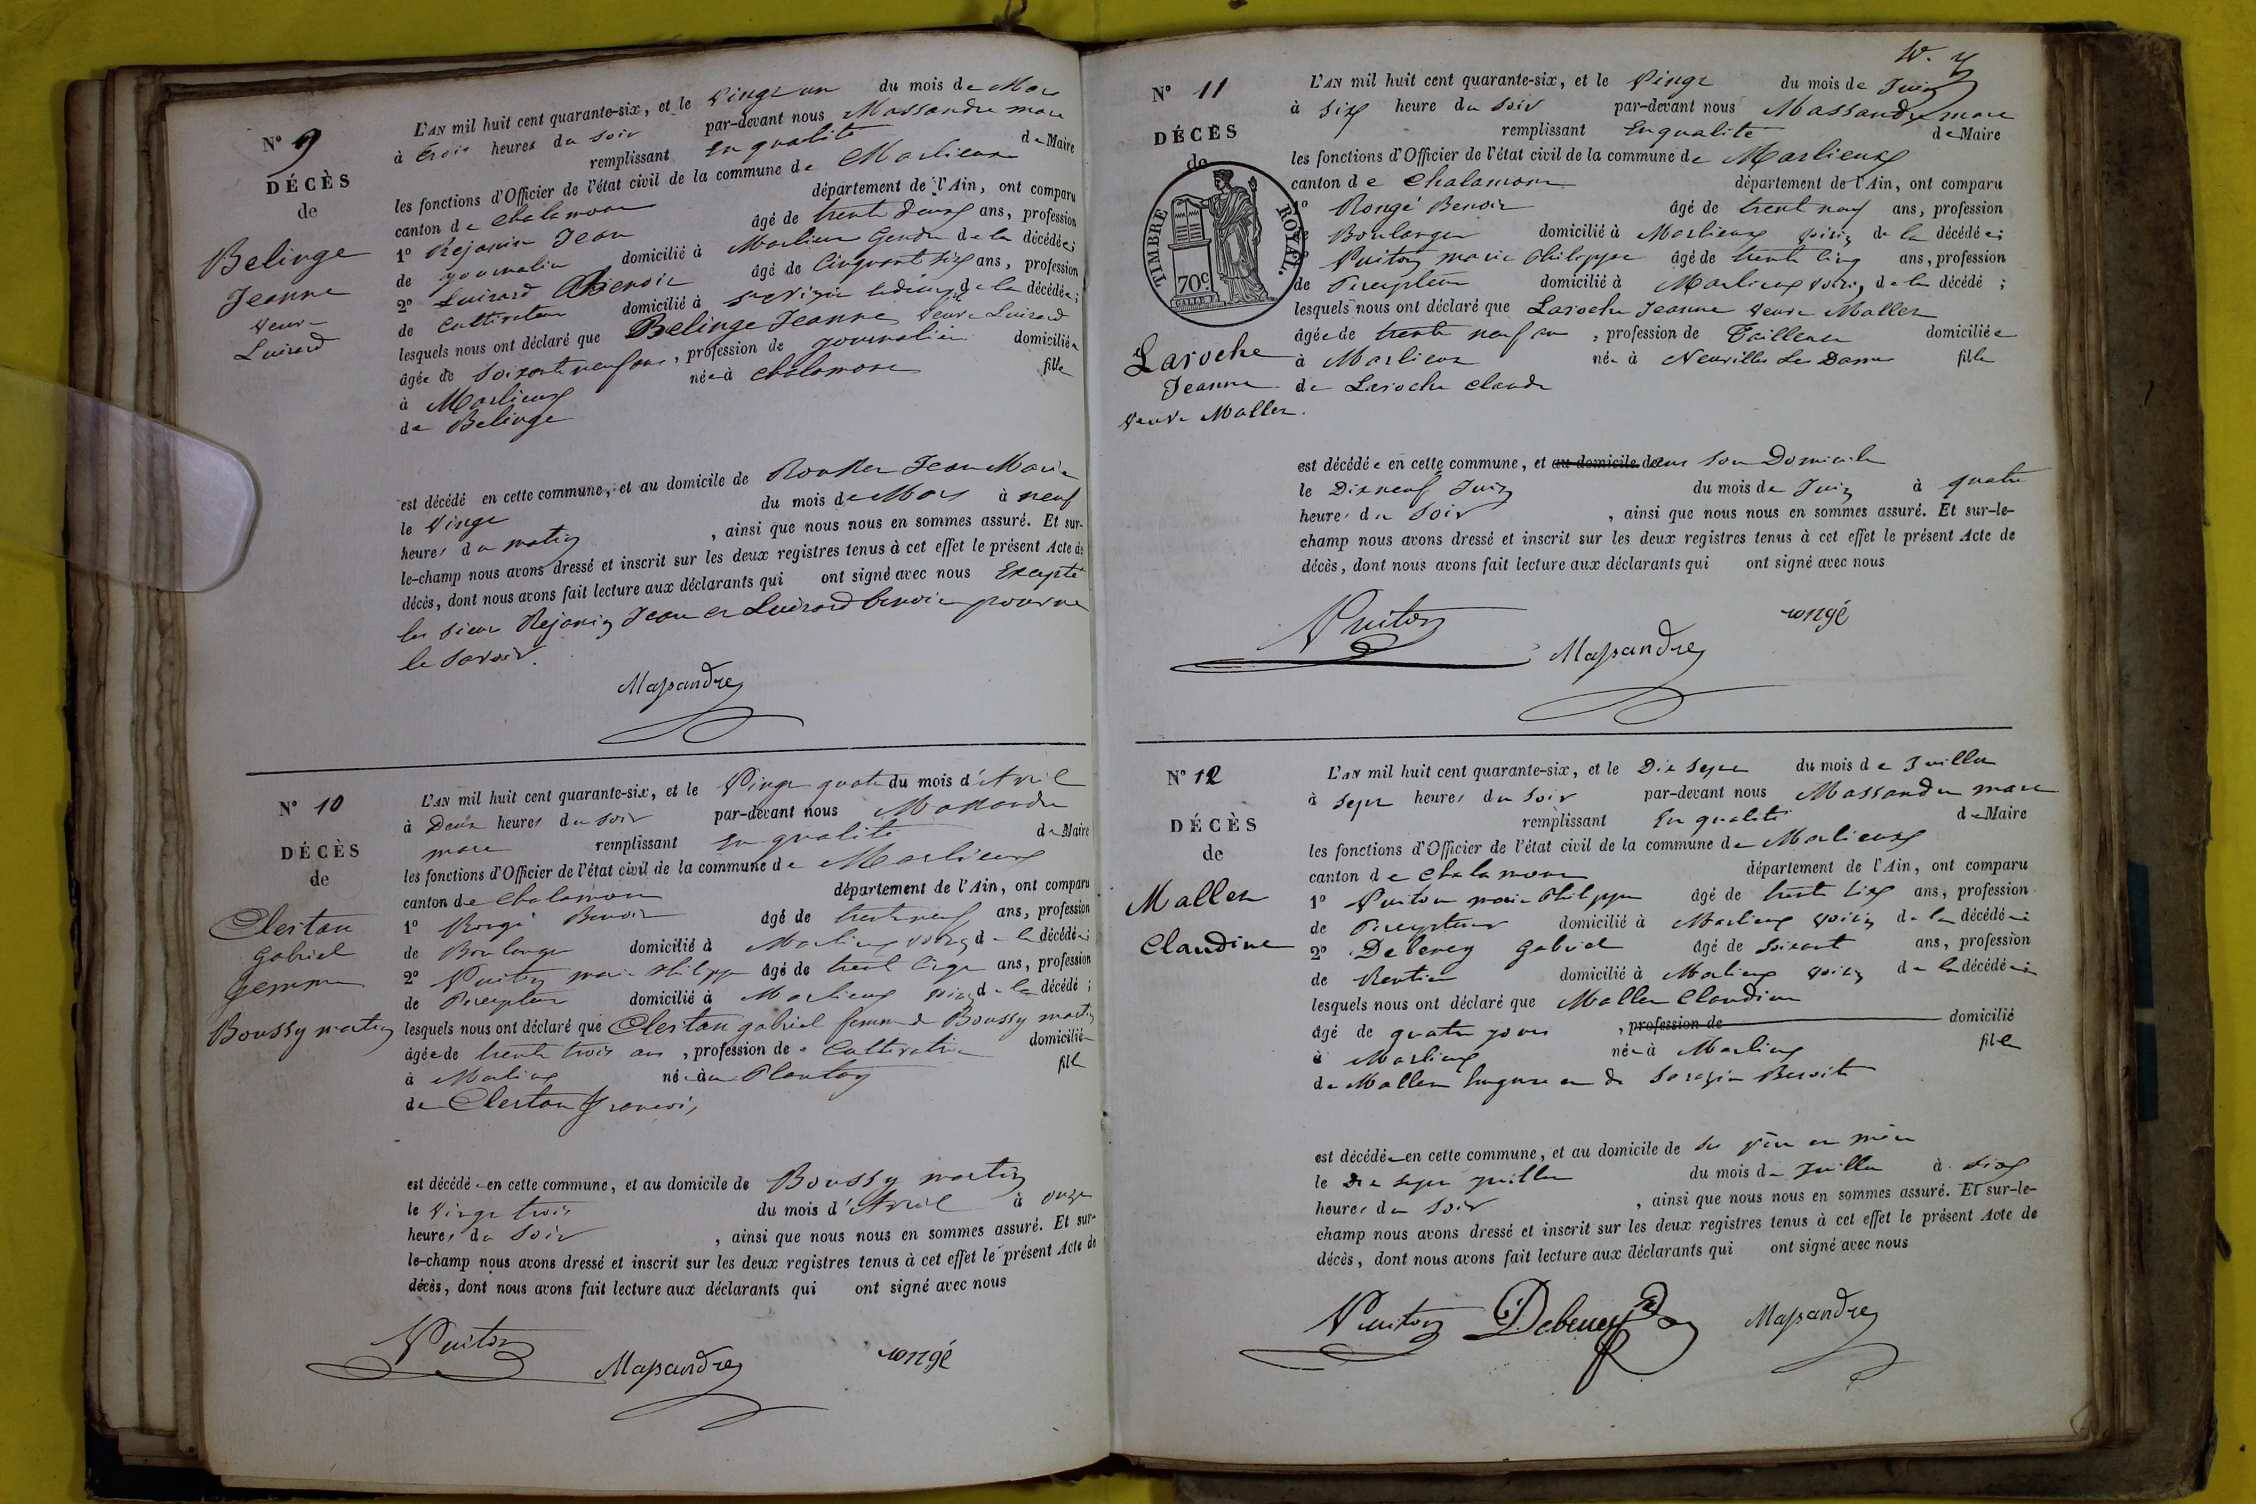 N° 9
DÉCÈS
de
Belinge
Jeanne
veuve
Luirard
L'AN mil huit cent quarante-six, et le vingt un du mois de Mars
à trois heures du soir par-devant nous Massandre marc
remplissant En qualité de Maire
les fonctions d'Officier de l'état civil de la commune de Marlieux
canton de Chalamont département de l'Ain, ont comparu
1° Rejanin Jean âgé de trente deux ans, profession
de journalier domicilié à Marlieux Gendre de la décédée;
2° Luirard Benoit âgé de Cinquante six ans, profession
de Cultivateur domicilié à de la décédée;
lesquels nous ont déclaré que Belinge Jeanne veuve Luirard
âgée de Soixante neuf ans, profession de journalière domiciliée
à Marlieux née à Chalamont fille
de Belinge
est décédé en cette commune, et au domicile de Jean Marie
le Vingt du mois de Mars à neuf
heures du matin, ainsi que nous nous en sommes assuré. Et sur-
le-champ nous avons dressé et inscrit sur les deux registres tenus à cet effet le présent Acte de
décès, dont nous avons fait lecture aux déclarants qui ont signé avec nous Excepté
les sieur Rejanin Jean et Luirard benoit pour ne
le savoir.
Massandre
N° 10
DÉCÈS
de
Clertan
Gabriel
femme
Boussy martin
L'AN mil huit cent quarante-six, et le Vingt quatre du mois d'Avril
à Deux heures du soir par-devant nous Massandre
marc remplissant En qualité de Maire
les fonctions d'Officier de l'état civil de la commune de Marlieux
canton de Chalamont département de l'Ain, ont comparu
1° Rongé Benoit âgé de trente neuf ans, profession
de Boulanger domicilié à Marlieux voisin de la décédée;
2° Vuiton marie Philippe âgé de trente Cinq ans, profession
de Percepteur domicilié à Marlieux voisin de la décédé;
lesquels nous ont déclaré que Clertan gabriel femme de Boussy martin
âgée de trente trois ans, profession de Cultivatrice domiciliée
à Marlieux née au Plantay fille
de Clertan francois
est décédée en cette commune, et au domicile de Boussy martin
le Vingt trois du mois d'Avril à onze
heures du Soir, ainsi que nous nous en sommes assuré. Et sur-
le-champ nous avons dressé et inscrit sur les deux registres tenus à cet effet le présent Acte de
décès, dont nous avons fait lecture aux déclarants qui ont signé avec nous
Vuiton
Massandre
rongé
N° 11
DÉCÈS
de
TIMBRE ROYAL.
70c
Laroche
Jeanne
veuve Mallen.
L'AN mil huit cent quarante-six, et le Vingt du mois de Juin
à six heure du soir par-devant nous Massandre marc
remplissant En qualité de Maire
les fonctions d'Officier de l'état civil de la commune de Marlieux
canton de Chalamont département de l'Ain, ont comparu
1° Rongé Benoit âgé de trent neuf ans, profession
de Boulanger domicilié à Marlieux voisin de la décédée;
Vuiton marie Philippe âgé de trente Cinq ans, profession
de Percepteur domicilié à Marlieux voisin de la décédé;
lesquels nous ont déclaré que Laroche Jeanne veuve Mallen
âgée de trente neuf an, profession de Tailleuse domiciliée
à Marlieux née à Neuville Les Dames fille
de Laroche Claude
est décédée en cette commune, et au domicile dans Son Domicile
le Dix neuf Juin du mois de Juin à quatre
heures du Soir, ainsi que nous nous en sommes assuré. Et sur-le-
champ nous avons dressé et inscrit sur les deux registres tenus à cet effet le présent Acte de
décès, dont nous avons fait lecture aux déclarants qui ont signé avec nous
Vuiton
Massandre
rongé
N° 12
DÉCÈS
de
Mallen
Claudine
L'AN mil huit cent quarante-six, et le Dix Sept du mois de Juillet
à sept heures du soir par-devant nous Massandre marc
remplissant En qualité de Maire
les fonctions d'Officier de l'état civil de la commune de Marlieux
canton de Chalamont département de l'Ain, ont comparu
1° Vuiton marie Philippe âgé de trente six ans, profession
de Percepteur domicilié à Marlieux voisin de la décédée
2° Debeney Gabriel âgé de Soixante ans, profession
de Rentier domicilié à Marlieux voisin de la décédée
lesquels nous ont déclaré que Mallen Claudine
âgé de quatre jours, profession de domicilié
à Marlieux née à Marlieux fille
de Mallen et de Sarazin Benoite
est décédée en cette commune, et au domicile de Ses père et mère
le Dix sept juillet du mois de Juillet à Six
heures du Soir, ainsi que nous nous en sommes assuré. Et sur-le-
champ nous avons dressé et inscrit sur les deux registres tenus à cet effet le présent Acte de
décès, dont nous avons fait lecture aux déclarants qui ont signé avec nous
Vuiton
Debeney
Massandre